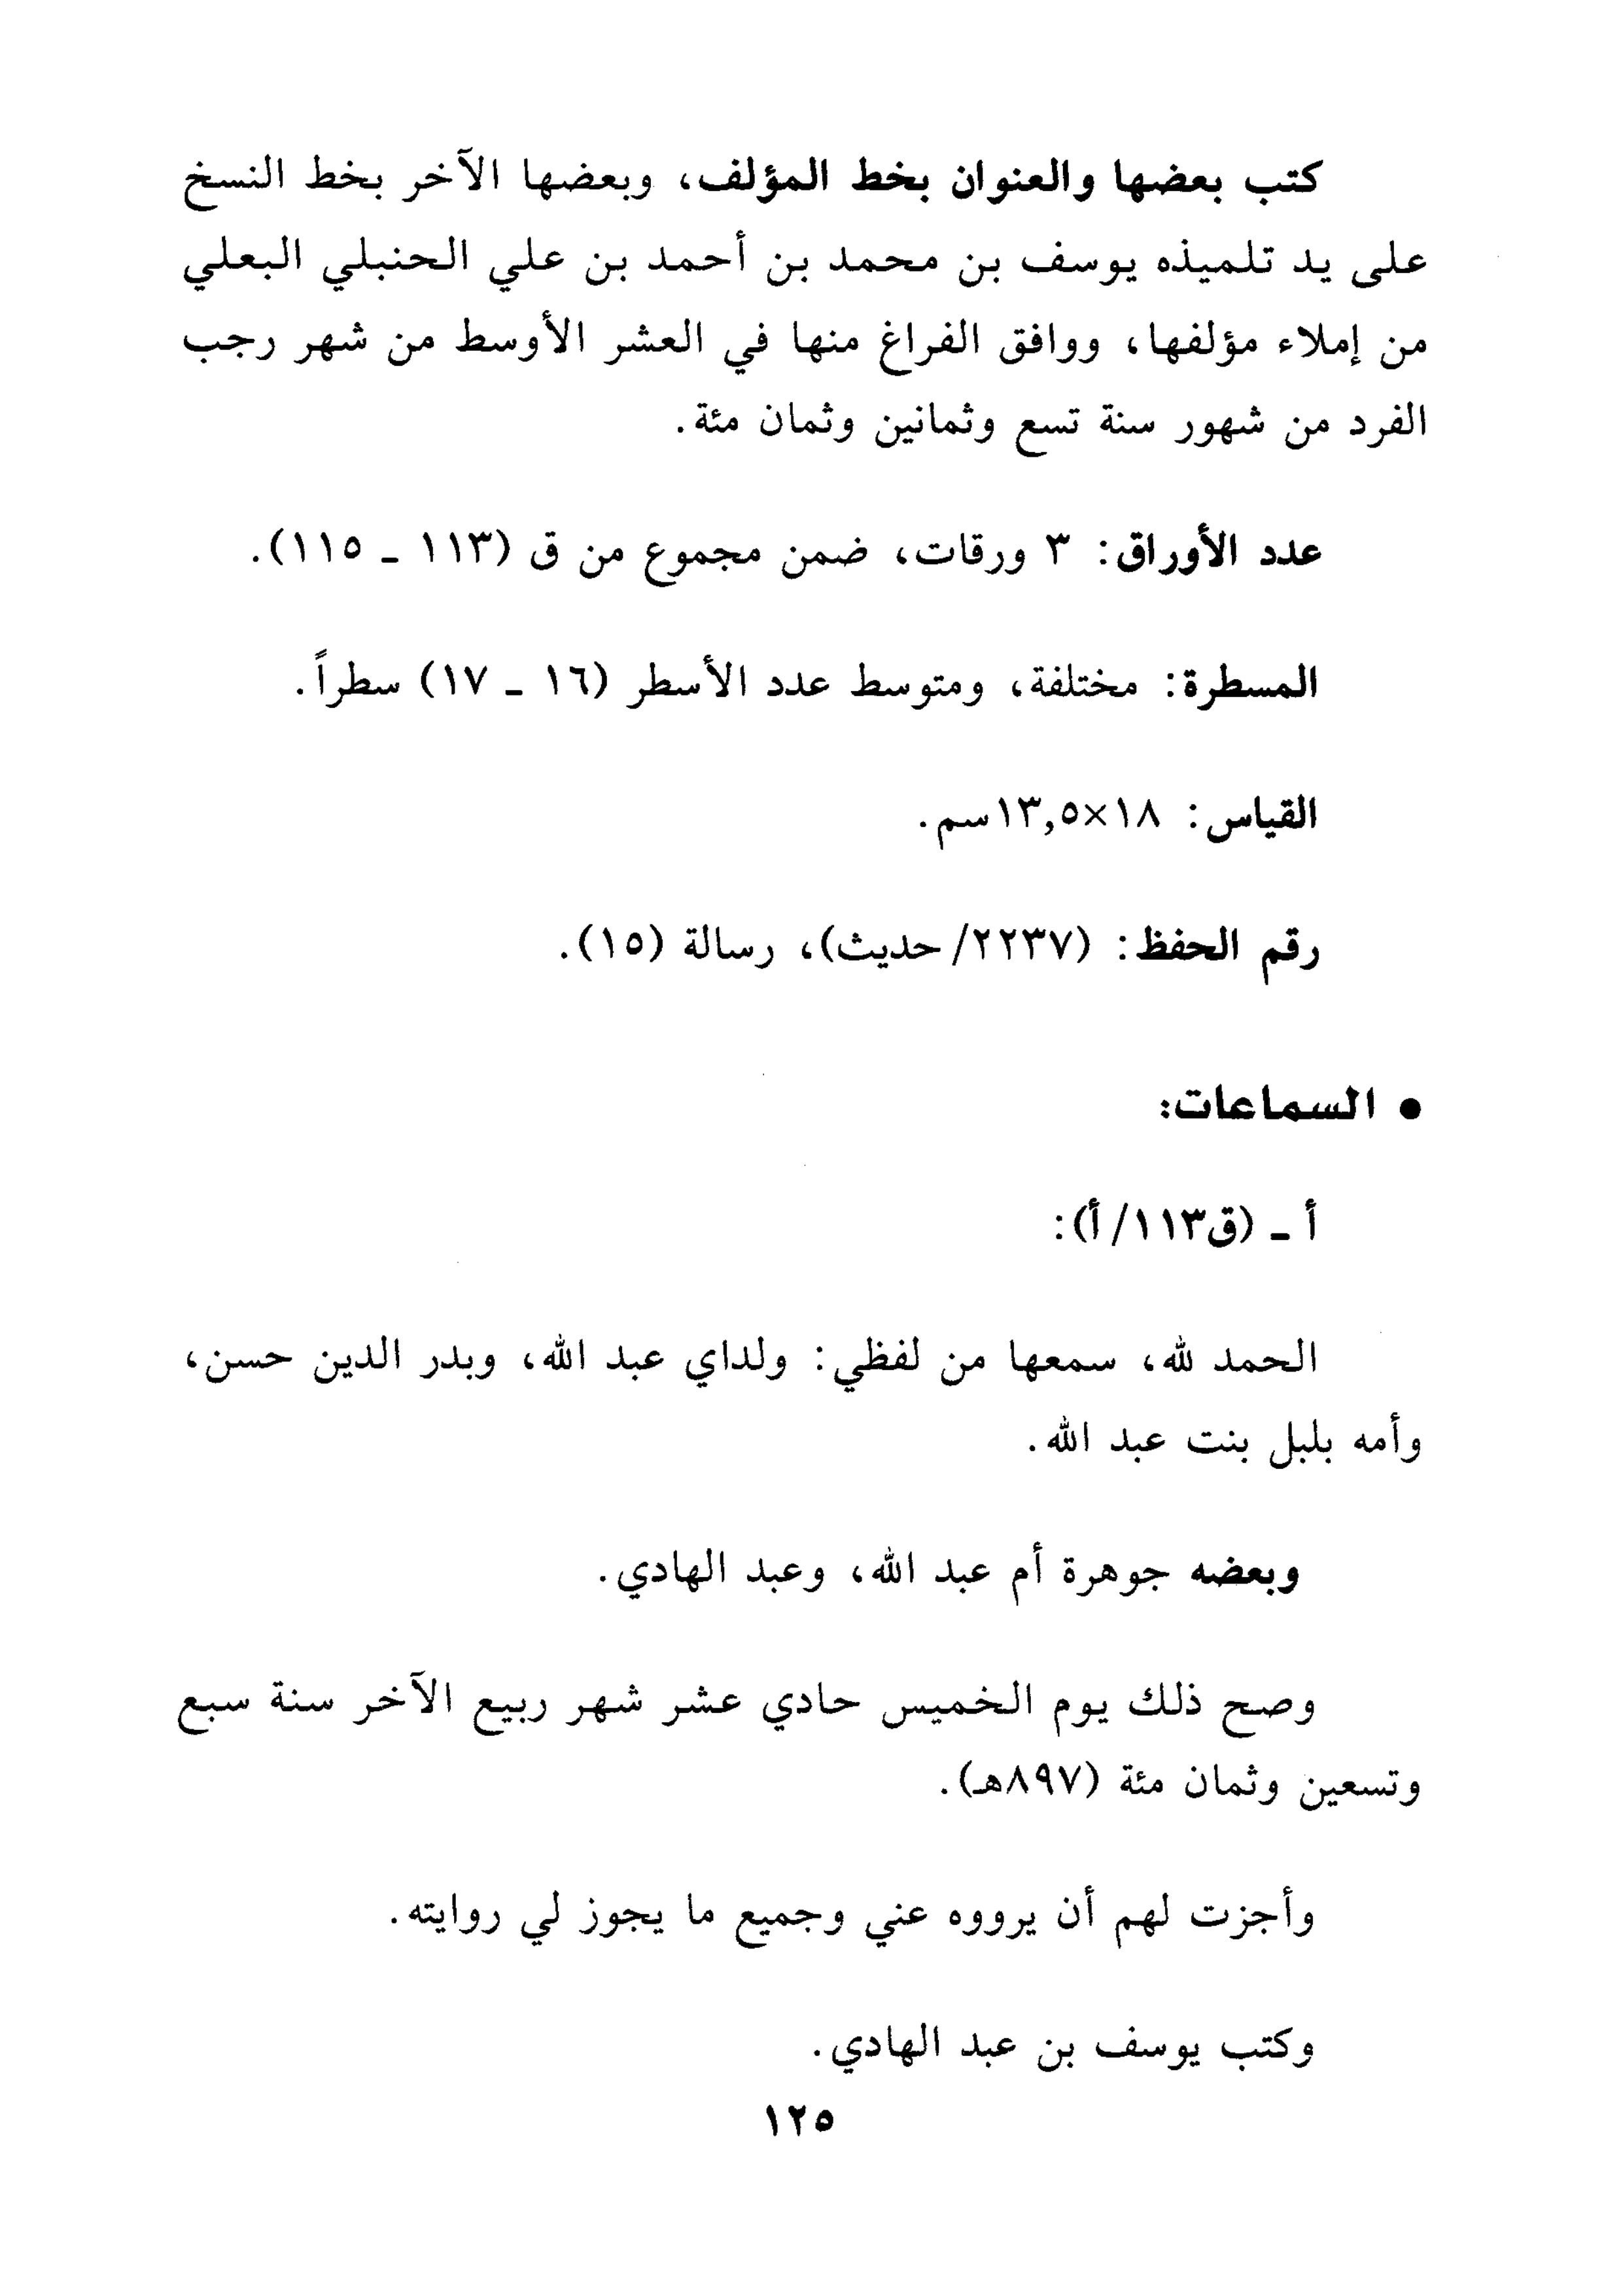 كتب بعضها والعنوان بخط المؤلف، وبعضها الآخر بخط النسخ
على يد تلميذه يوسف بن محمد بن أحمد بن علي الحنبلي البعلي
من إملاء مؤلفها، ووافق الفراغ منها في العشر الأوسط من شهر رجب
الفرد من شهور سنة تسع وثمانين وثمان مئة.
عدد الأوراق: ٣ ورقات، ضمن مجموع من ق (١١٣ - ١١٥).
المسطرة: مختلفة، ومتوسط عدد الأسطر (١٦ - ١٧) سطراً.
القياس: ١٨×١٣,٥سم.
رقم الحفظ: (٢٢٣٧/حديث)، رسالة (١٥).
● السماعات:
أ - (ق١١٣/أ):
الحمد لله، سمعها من لفظي: ولداي عبد الله، وبدر الدين حسن،
وأمه بلبل بنت عبد الله.
وبعضه جوهرة أم عبد الله، وعبد الهادي.
وصح ذلك يوم الخميس حادي عشر شهر ربيع الآخر سنة سبع
وتسعين وثمان مئة (٨٩٧هـ).
وأجزت لهم أن يرووه عني وجميع ما يجوز لي روايته.
وكتب يوسف بن عبد الهادي.
١٢٥